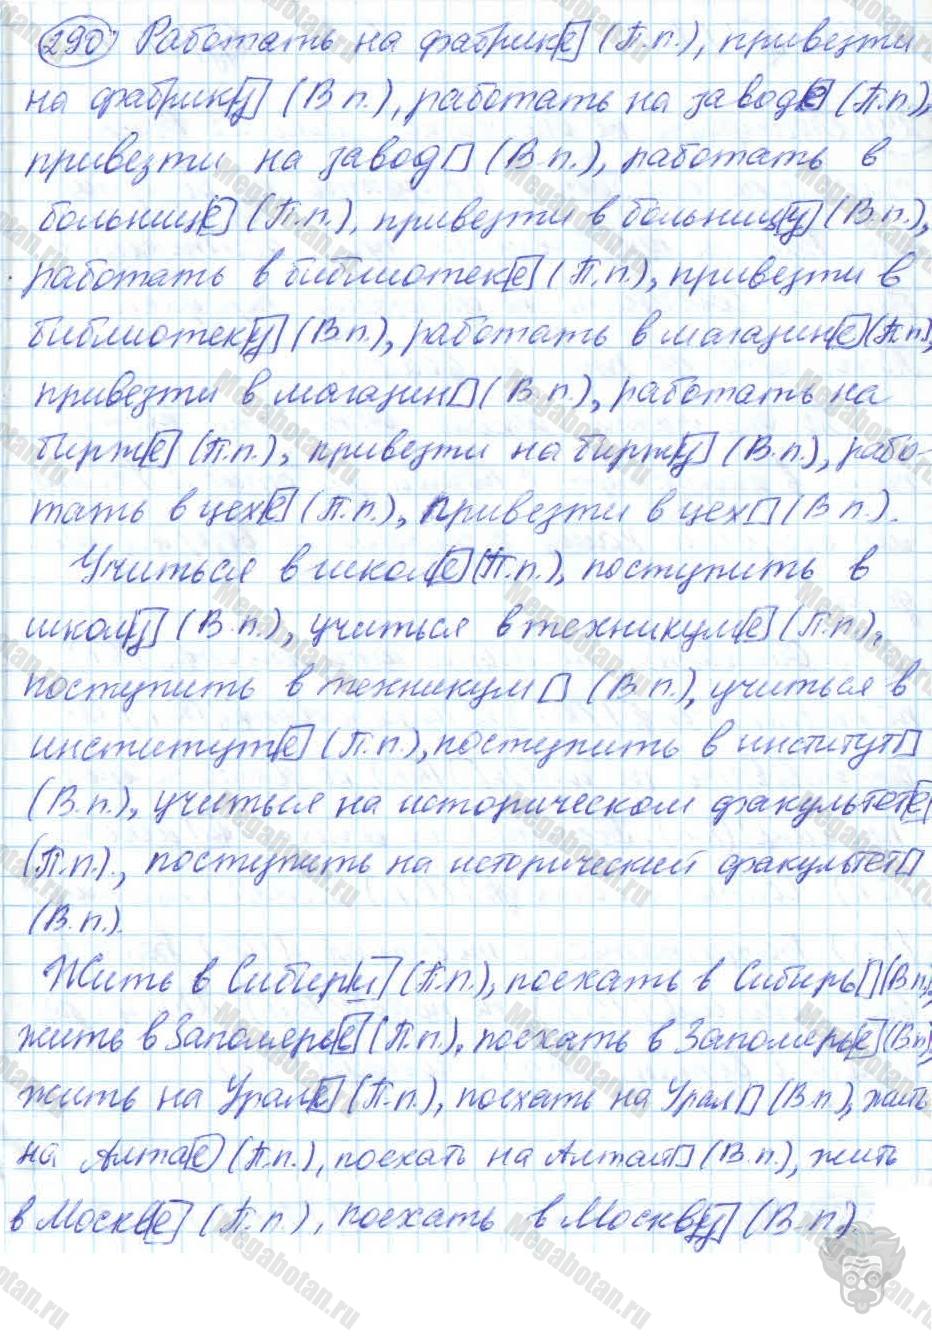 290. Работать на фабрике (П.п.), привезти
на фабрику (В.п.), работать на заводе (П.п.),
привезти на завод▢ (В.п.), работать в
больнице (П.п.), привезти в больницу (В.п.),
работать в библиотеке (П.п.), привезти в
библиотеку (В.п.), работать в магазине (П.п.),
привезти в магазин▢ (В.п.), работать на
бирже (П.п.), привезти на биржу (В.п.), рабо-
тать в цехе (П.п.), привезти в цех▢ (В.п.).
Учиться в школе (П.п.), поступить в
школу (В.п.), учиться в техникуме (П.п.),
поступить в техникум▢ (В.п.), учиться в
институте (П.п.), поступить в институт▢
(В.п.), учиться на историческом факультете
(П.п.), поступить на исторический факультет▢
(В.п.).
Жить в Сибири (П.п.), поехать в Сибирь▢ (В.п.),
жить в Заполярье (П.п.), поехать в Заполярье (В.п.),
жить на Урале (П.п.), поехать на Урал▢ (В.п.), жить
на Алтае (П.п.), поехать на Алтай▢ (В.п.), жить
в Москве (П.п.), поехать в Москву (В.п.)
Megabotan.ru